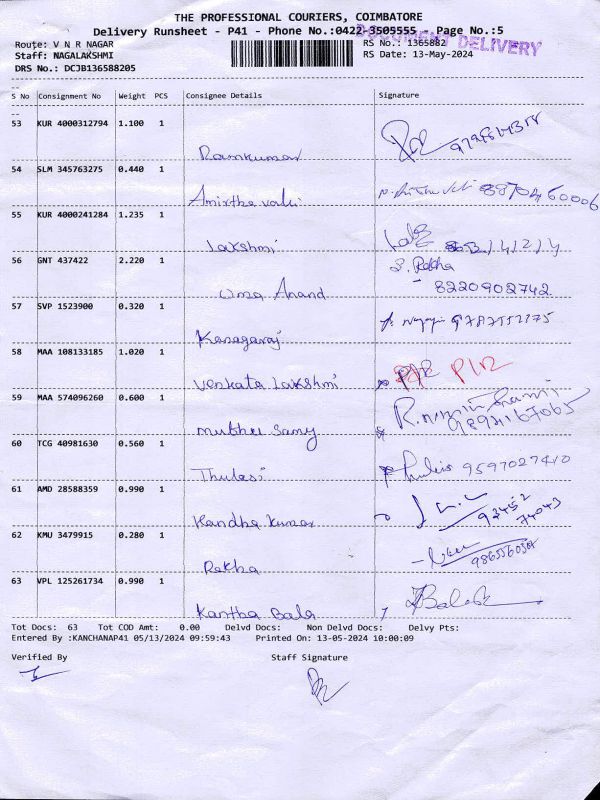 THE PROFESSIONAL COURIERS, COIMBATORE
Delivery Runsheet - P41 - Phone No.:0422-3505555 Page No.:5
DOCUMENT DELIVERY
Route: V N R NAGAR RS No.: 1365882
Staff: NAGALAKSHMI RS Date: 13-May-2024
DRS No.: DCJB136588205
S No Consignment No Weight PCS Consignee Details Signature
53 KUR 4000312794 1.100 1
Ramkumar
54 SLM 345763275 0.440 1
Amirtha valli 8870460006
55 KUR 4000241284 1.235 1
Lakshmi
56 GNT 437422 2.220 1 S. Rekha
Uma Anand 8220902742
57 SVP 1523900 0.320 1
Kanagaraj
58 MAA 108133185 1.020 1
Venkata Lakshmi
59 MAA 574096260 0.600 1
Muthu Samy
60 TCG 40981630 0.560 1
Thulasi 9597027410
61 AMD 28588359 0.990 1
Kandha Kumar 93452
74043
62 KMU 3479915 0.280 1
Rekha
63 VPL 125261734 0.990 1
Kantha Bala
Tot Docs: 63 Tot COD Amt: 0.00 Delvd Docs: Non Delvd Docs: Delvy Pts:
Entered By :KANCHANAP41 05/13/2024 09:59:43 Printed On: 13-05-2024 10:00:09
Verified By Staff Signature